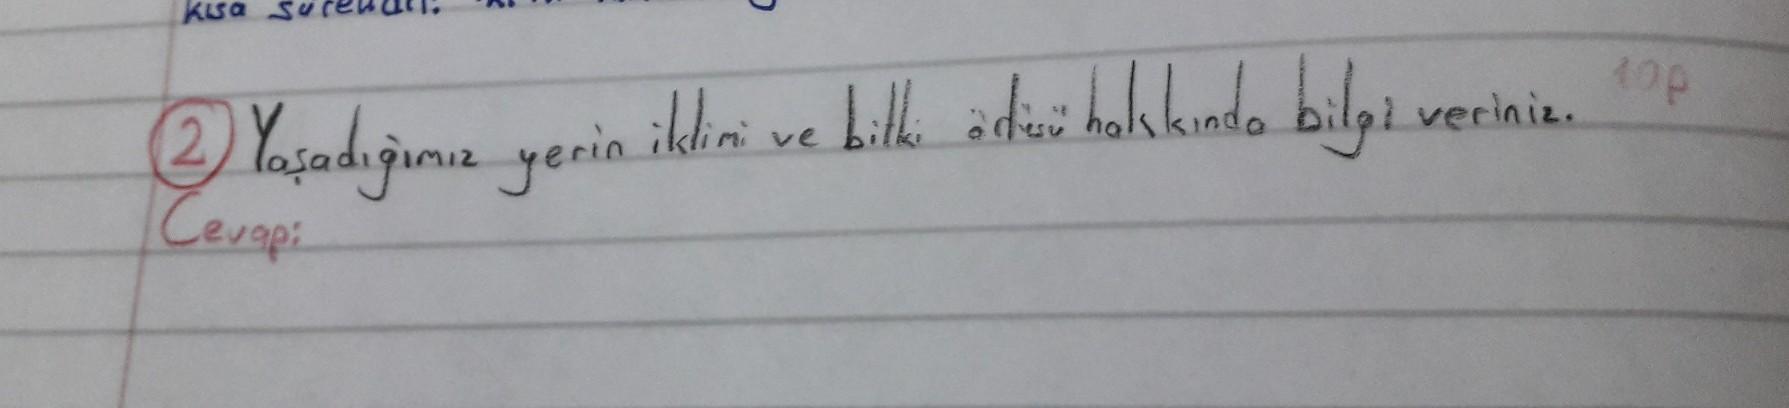 kısa
② Yaşadığımız yerin iklimi ve bitki ödüsü hakkında bilgi veriniz. 10p
Cevap: